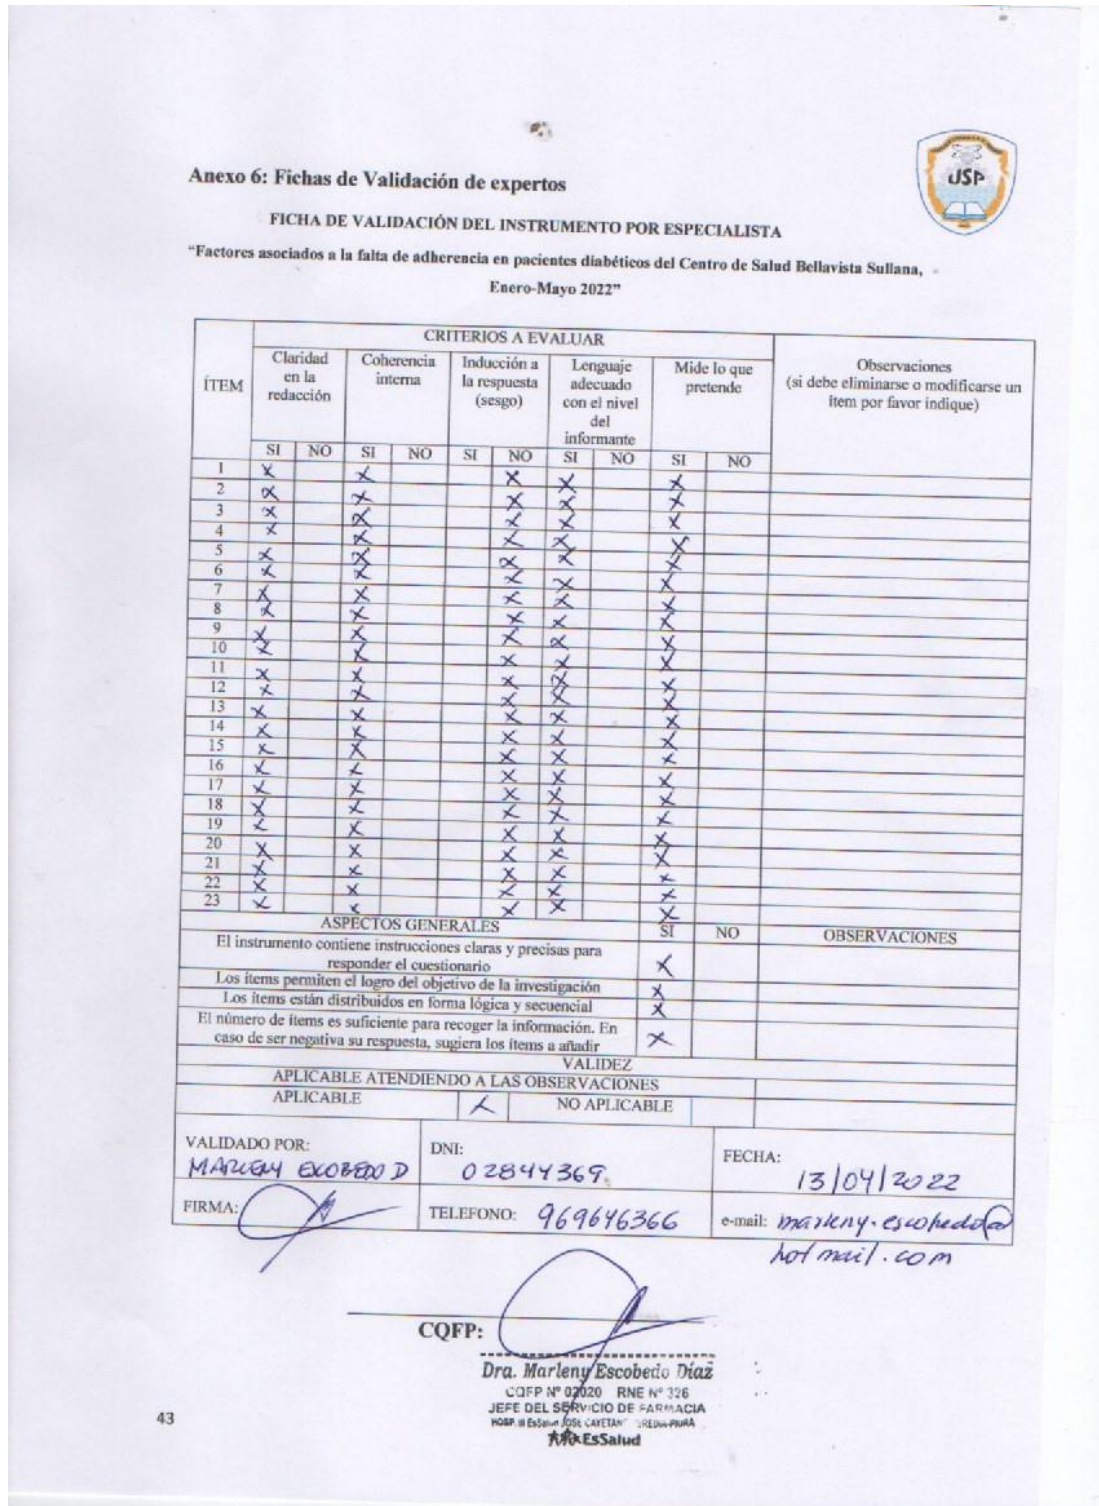 USP
Anexo 6: Fichas de Validación de expertos
FICHA DE VALIDACIÓN DEL INSTRUMENTO POR ESPECIALISTA
“Factores asociados a la falta de adherencia en pacientes diabéticos del Centro de Salud Bellavista Sullana,
Enero-Mayo 2022”
CRITERIOS A EVALUAR
ÍTEM
Claridad en la redacción
Coherencia interna
Inducción a la respuesta (sesgo)
Lenguaje adecuado con el nivel del informante
Mide lo que pretende
Observaciones
(si debe eliminarse o modificarse un ítem por favor indique)
SI NO SI NO SI NO SI NO SI NO
1 X X X X X
2 X X X X X
3 X X X X X
4 X X X X X
5 X X X X X
6 X X X X X
7 X X X X X
8 X X X X X
9 X X X X X
10 X X X X X
11 X X X X X
12 X X X X X
13 X X X X X
14 X X X X X
15 X X X X X
16 X X X X X
17 X X X X X
18 X X X X X
19 X X X X X
20 X X X X X
21 X X X X X
22 X X X X X
23 X X X X X
ASPECTOS GENERALES SI NO OBSERVACIONES
El instrumento contiene instrucciones claras y precisas para
responder el cuestionario X
Los ítems permiten el logro del objetivo de la investigación X
Los ítems están distribuidos en forma lógica y secuencial X
El número de ítems es suficiente para recoger la información. En
caso de ser negativa su respuesta, sugiera los ítems a añadir X
VALIDEZ
APLICABLE ATENDIENDO A LAS OBSERVACIONES
APLICABLE X NO APLICABLE
VALIDADO POR: DNI: FECHA:
MARLENY ESCOBEDO D 02844369 13/04/2022
FIRMA: TELEFONO: 969646366 e-mail: marleny.escobedo@
hotmail.com
CQFP:
Dra. Marleny Escobedo Díaz
CQFP Nº 02020 RNE Nº 326
JEFE DEL SERVICIO DE FARMACIA
HOSP. III EsSalud JOSE CAYETANO
EsSalud
43